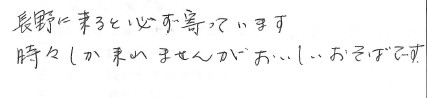 長野に来ると必ず寄っています
時々しか来れませんがおいしいおそばです